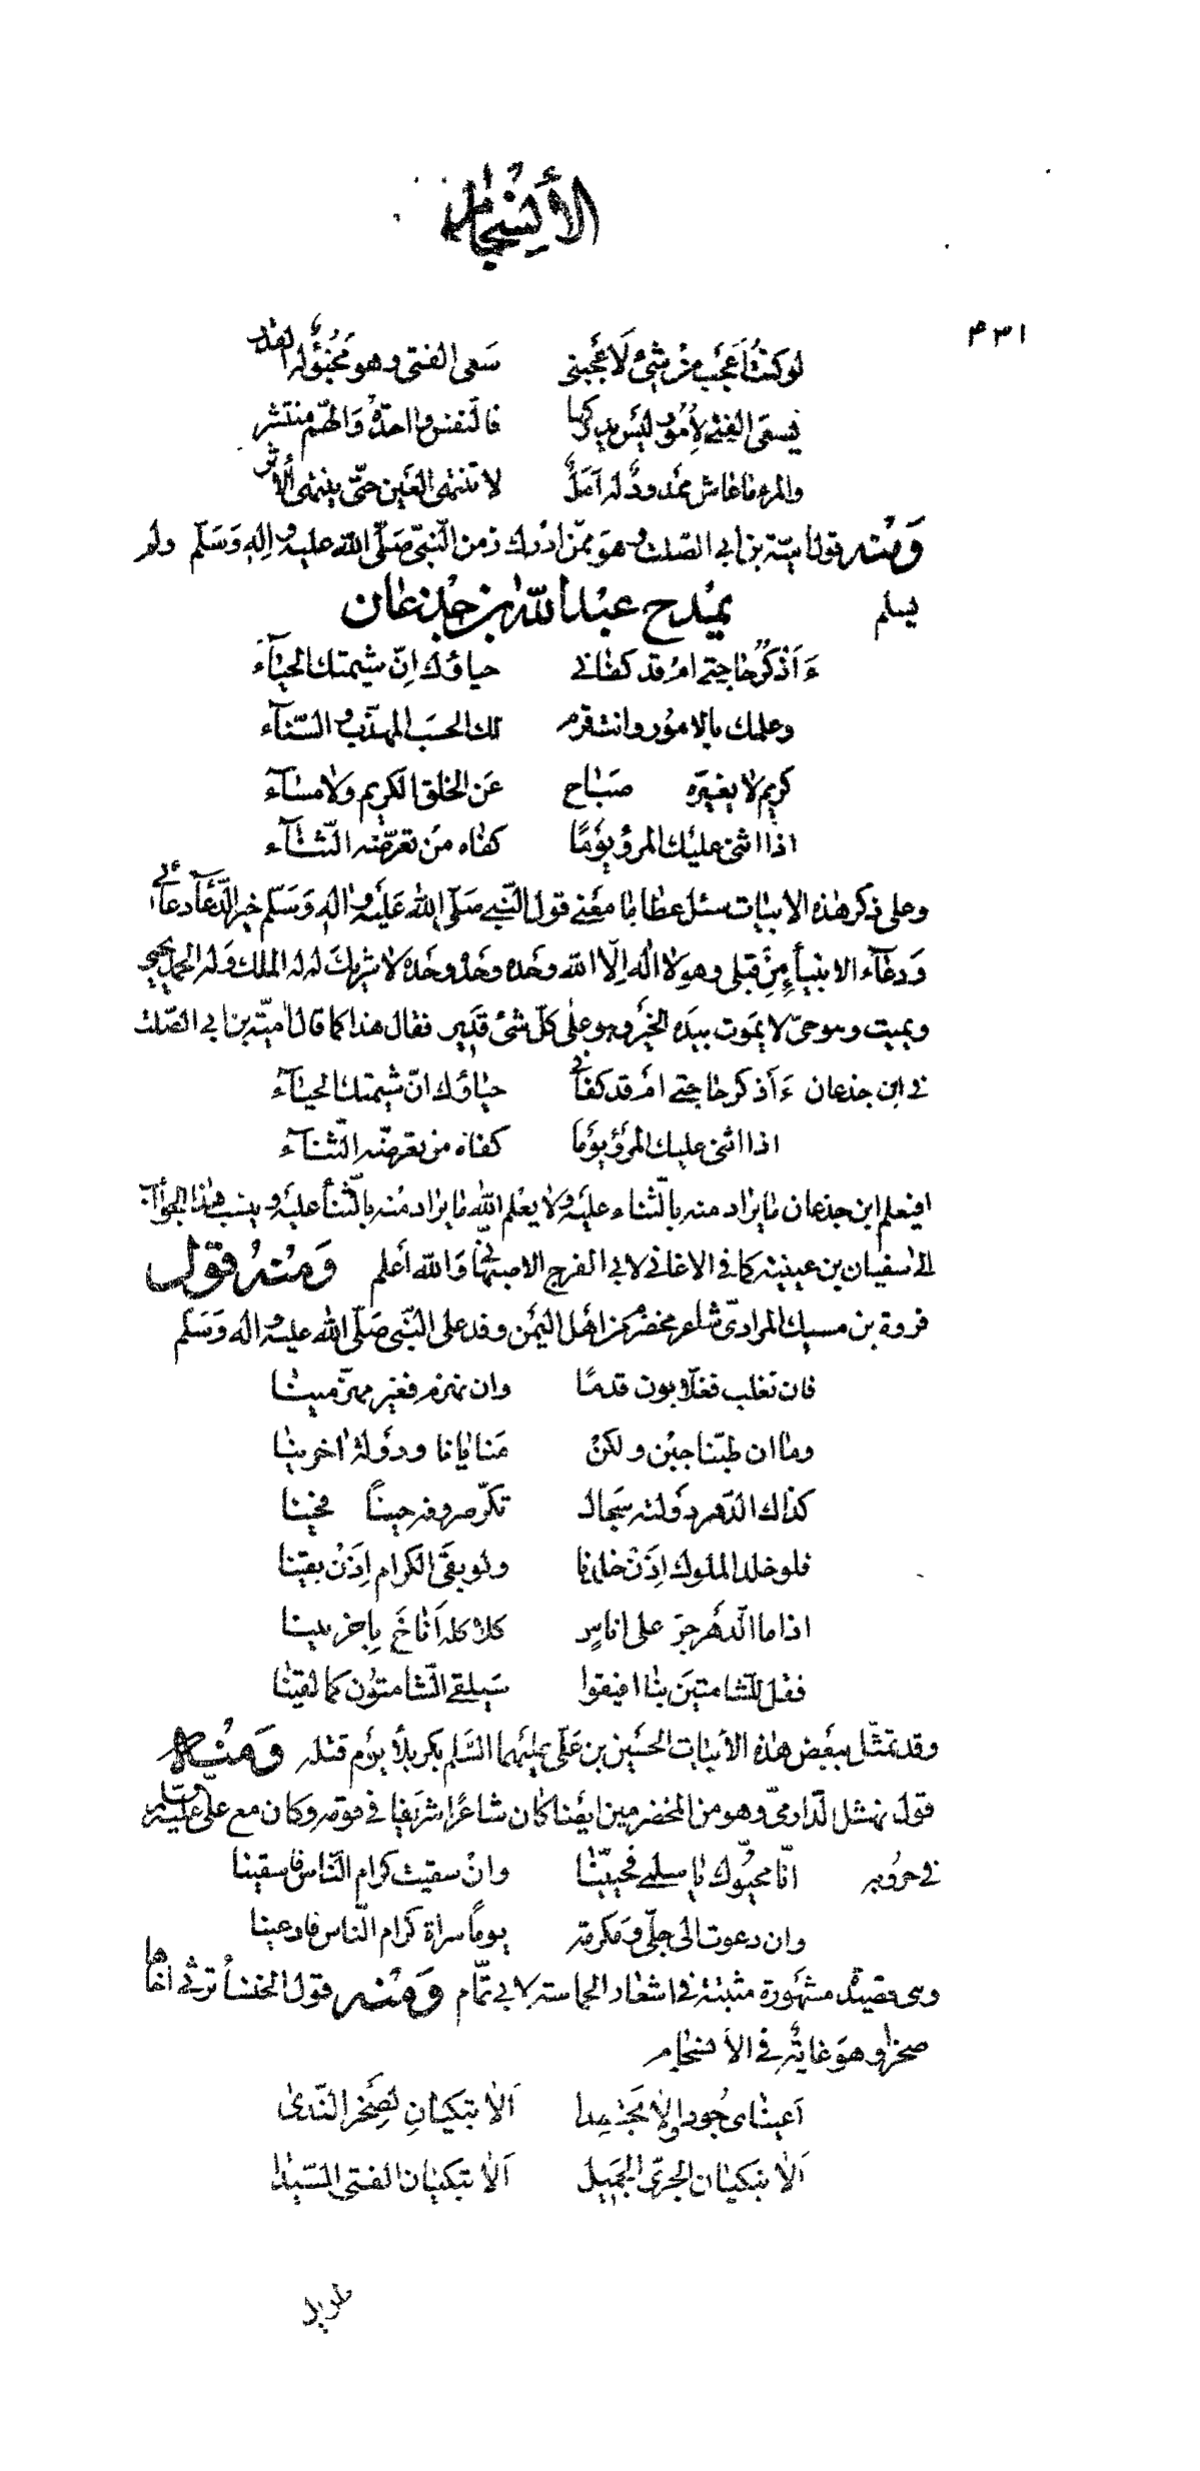 الأنسجام
٤٣١
لو كنتُ اَعجَب من شئ لَاَعجَبنى سَعى الفتى وهو مَخبُوٌّ له القدر
يسعى الفتى لِاُمُورٍ ليَس يدركها فالنفس واحدَةٌ وَالهّم منتشر
والمرء ماعاش ممدودٌ له آمَلٌ لا تنتهى العَين حتّى ينتهى ألاثر
وَمنْه قول اميّة بن ابى الصّلت وهوَ ممّن ادْرك زمن النّبىّ صَلّى اللّٰه عليه واله وَسَلّم ولم
يسلم يمْدح عبْد اللّٰه بن جُدعان
ءَاَذْكرُ حاجتى امْ قد كفانى حياؤك اِنّ شيمتك الحيآء
وعلمك بالامُور وانت قرم لك الحسَب المهذّب والسّنآء
كريم لا يغيّره صَباح عَن الخلق الكريم ولا مسآء
اذا اثنى عليك المرؤ يَومًا كفاه مِن تعرّضه الثّنآء
وعلى ذكر هذه الابيات سئل عطا ما معنى قول النّبى صَلّى اللّٰه عَليه واله وَسَلّم خير الدّعآء دعآئى
وَدعآء الانبيأءِ مِن قبلى وهو لا اله اِلّا اللّٰه وحده وحْده وحَده لا شريك له له الملك وله الحمد يحيى
ويميت وهوحىّ لا يمَوت بيده الخير وهو على كلّ شئ قدَير فقال هذا كما قال اميّة بن ابى الصّلت
فى ابن جذعان ءَاَذكر حاجتى امْ قد كفانى حياؤك انّ شيمتك الحيآء
اذا اثنى عليك المرؤ يوَما كفاه من تعرضّه الثّنآء
افيعلم ابن جذعان ما يراد منه بالثّناء عليَه ولا يعْلم اللّٰه ما يراد منْه بالثّنأ عليَه وينسب هٰذا الجوَاب
الى سفيان بن عيينة كما فى الاغانى لابى الفرج الاصبهانى وَاللّٰه أعلم وَمنْه قول
فروة بن مسيك المرادىّ شاعر مخضرم من اهل اليمَن وفد على النّبى صَلّى اللّٰه عليه واله وَسَلّم
فان نغلب فغلّابون قدمًا وان نهزم فغير مهزّمينا
وما ان طبّنا جبْن ولكنْ مَنايانا ودوَلة اٰخرينا
كذاك الدّهر دَولته سَجال تكّر صروفه حينًا فحينا
فلو خلد الملوك اِذَنْ خلدنا ولو بقَى الكرام اِذَنْ بقينا
اذا ما الدّهر جرّ على اناسٍ كلاكله اَناخَ باِخرينا
فقل للشّامتين بنا افيقوا سَيلقى الشّامتون كما لقينا
وقد تمثّل ببعَض هذه الأبيات الحسَين بن عَلّى عليهما السّلم بكربلأ يوَم قتله وَمنْه
قول نهشل الدّارمىّ وهو من المخضرمين ايضا كان شاعرًا شريفا فى قومه وكان مع علىّ عليه السلم
فى حروُبه انّا محيّوك يا سلمى فحيّينا وانْ سقيت كرام النّاس فاسقينا
وان دعوت الى جلّى ومَكرمة يومًا سراة كرام النّاس فادعينا
وهى قصيدة مشهَورة مثبتة فى اشعار الحماسة لابى تمّام وَمنْه قول الخنسأ ترثى اخاها
صخرا وهوَ غايةٌ فى الأنسجام
اَعينىَّ جُودا ولا تجَمدا اَلا تبَكيانِ لصَخر النّدى
اَلا تبكيان الجرىّ الجمَيل اَلا تبكيان الفتى السّيدا
طويل